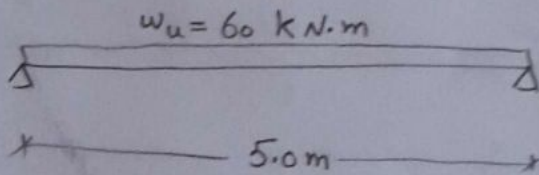 wu = 60 kN.m
5.0m